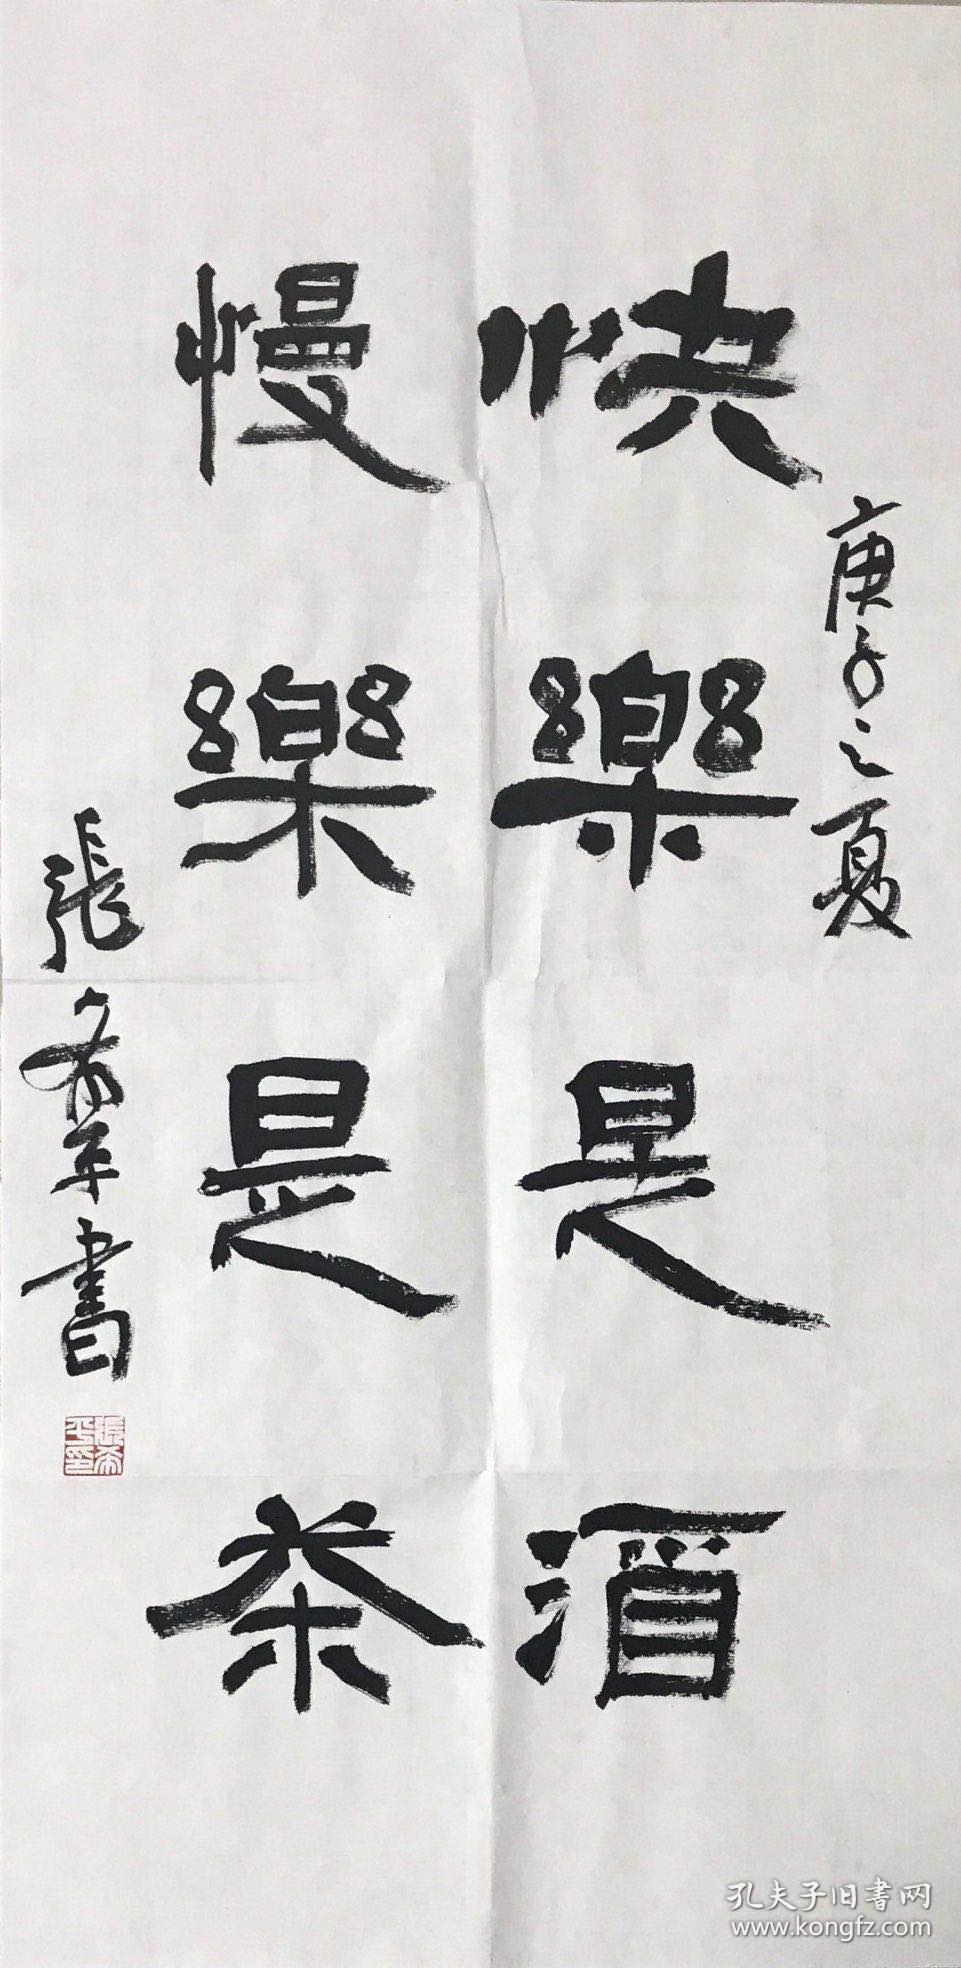 庚子之夏
快樂是酒
慢樂是茶
張希平書
張希平印
孔夫子旧書网
www.kongfz.com